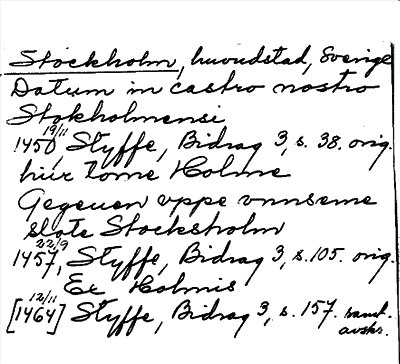 Stockholm, huvudstad, Sverige
Datum in castro nostro
Stokholmensi
19/11
1450, Styffe, Bidrag 3, s. 38. orig.
hiir tome Holme
Gegeuen vppe vnnseme
slote Stocksholm
22/9
1457, Styffe, Bidrag 3, s. 105. orig.
Ex Holmis
12/11
[1464] Styffe, Bidrag 3, s. 157. samt.
avskr.